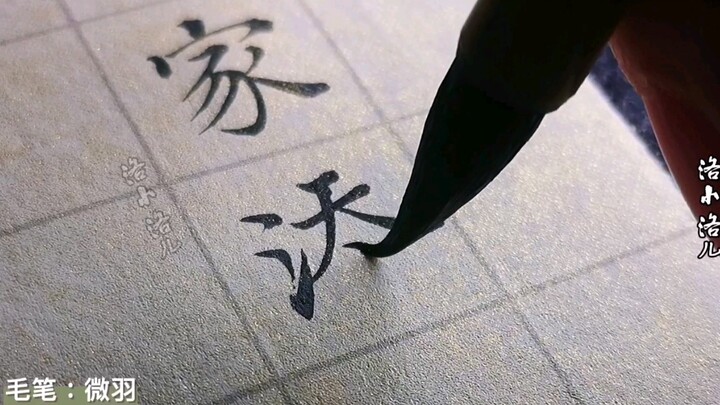 家
洛小洛儿
洛小洛儿
毛笔：微羽